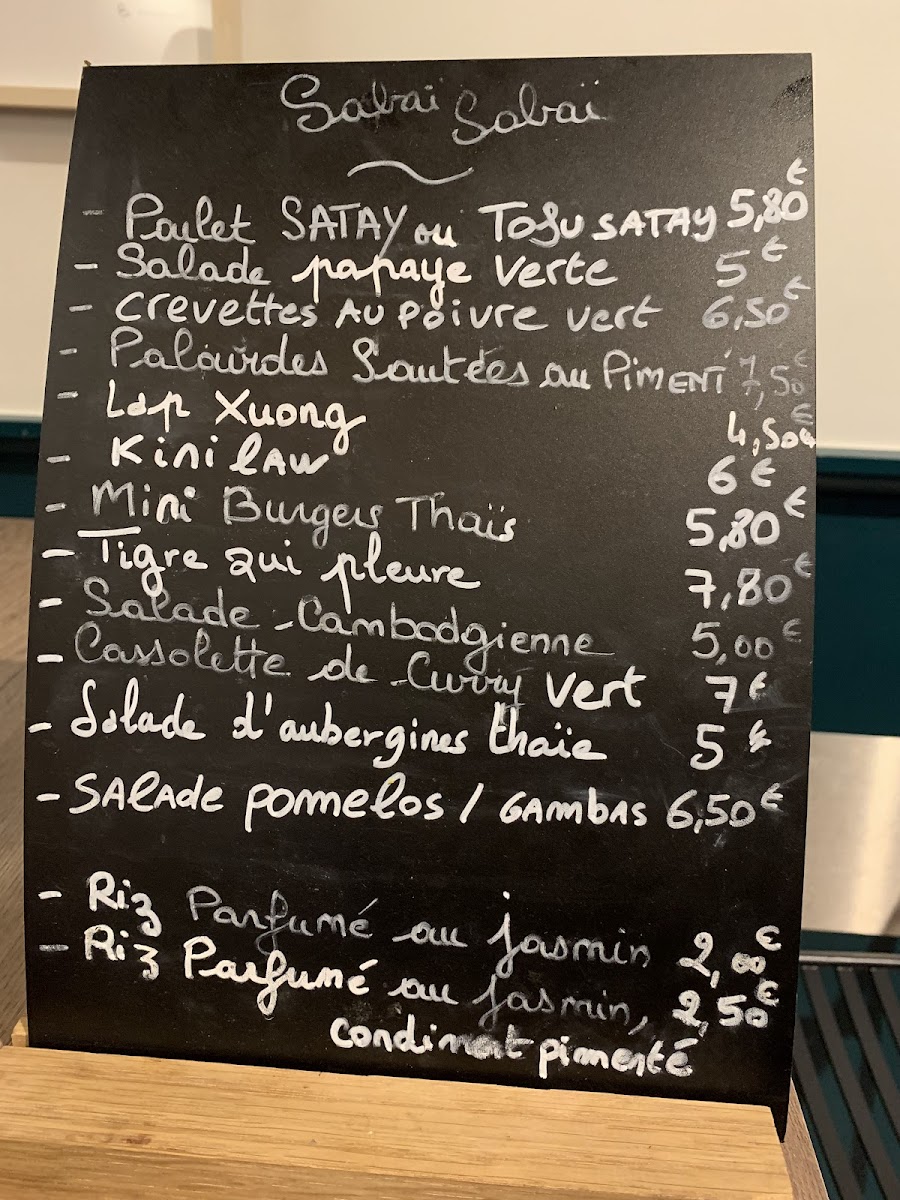 Sabaï Sabaï
- Poulet SATAY ou TOFU SATAY 5,80€
- Salade papaye verte 5€
- crevettes AU POIVRE vert 6,50€
- Palourdes Sautées au PIMENT 7,50€
- Lap Xuong 4,50€
- Kinilaw 6€
- Mini Burgers Thaïs 5,80€
- Tigre qui pleure 7,80€
- Salade Cambodgienne 5,00€
- Cassolette de Curry Vert 7€
- Salade d'aubergines thaïe 5€
- SALADE pomelos / GAMBAS 6,50€
- Riz Parfumé au jasmin 2,00€
- Riz Parfumé au jasmin, 2,50€
condiment pimenté